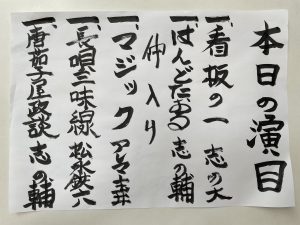 本日の演目
一、看板の一 志の大
一、はんどたおる 志の輔
仲入り
一、マジック アレマ圭井
一、長唄三味線 松永鉄六
一、唐茄子屋政談 志の輔